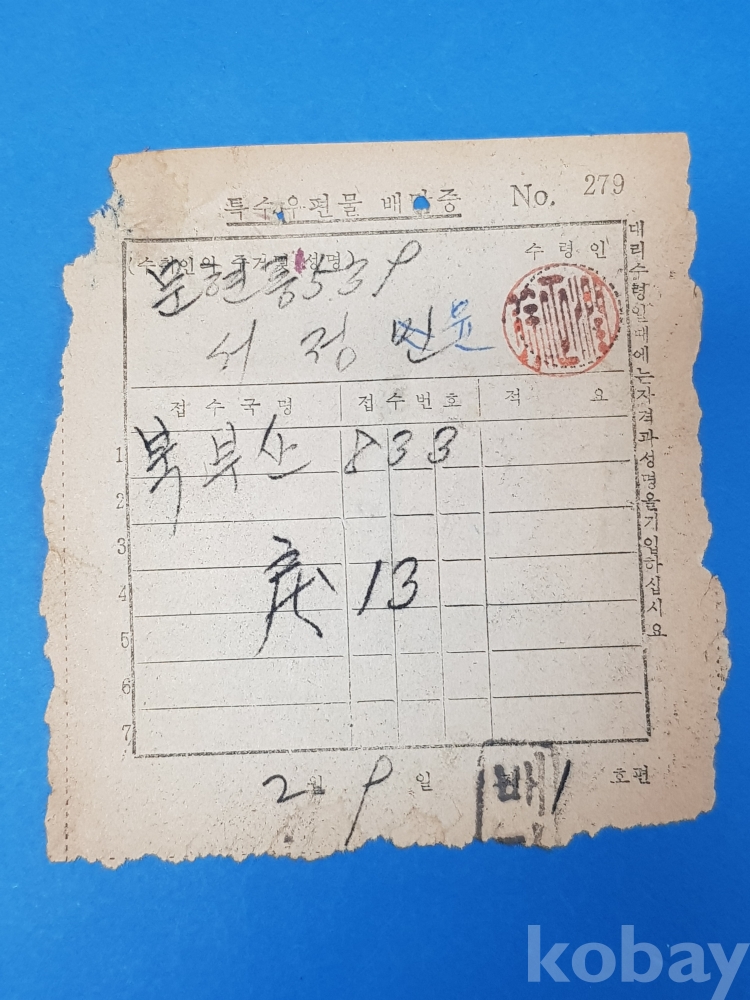 특수우편물 배달증 No. 279
(수취인의 주거및성명) 수령인
문현동 539
서정민 윤
접수국명 접수번호 적 요
1 북부산 833
2
3
4 13
5
6
7
2월 9일 배 1 호편
대리수령일때에는자격과성명을기입하십시요
kobay